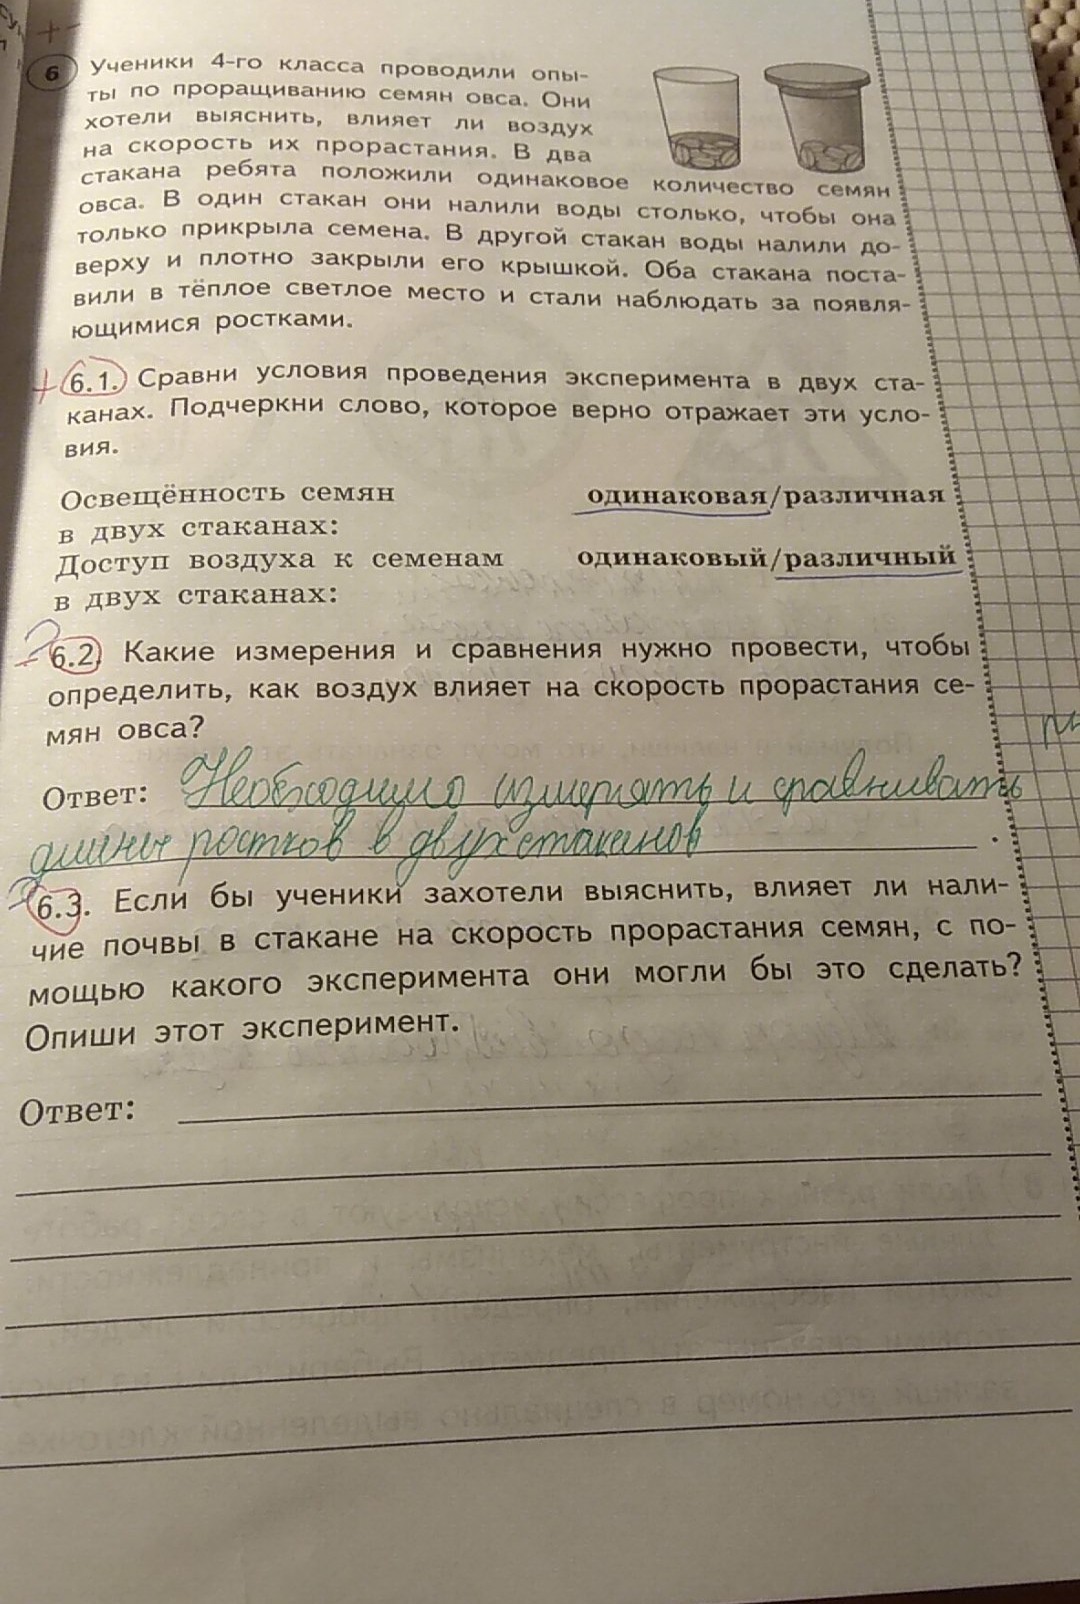 6 Ученики 4-го класса проводили опы-
ты по проращиванию семян овса. Они
хотели выяснить, влияет ли воздух
на скорость их прорастания. В два
стакана ребята положили одинаковое количество семян
овса. В один стакан они налили воды столько, чтобы она
только прикрыла семена. В другой стакан воды налили до-
верху и плотно закрыли его крышкой. Оба стакана поста-
вили в тёплое светлое место и стали наблюдать за появля-
ющимися ростками.
+ 6.1. Сравни условия проведения эксперимента в двух ста-
канах. Подчеркни слово, которое верно отражает эти усло-
вия.
Освещённость семян одинаковая/различная
в двух стаканах:
Доступ воздуха к семенам одинаковый/различный
в двух стаканах:
6.2. Какие измерения и сравнения нужно провести, чтобы
определить, как воздух влияет на скорость прорастания се-
мян овса?
Ответ: Необходимо измерять и сравнивать
длины ростков в двух стаканов.
6.3. Если бы ученики захотели выяснить, влияет ли нали-
чие почвы в стакане на скорость прорастания семян, с по-
мощью какого эксперимента они могли бы это сделать?
Опиши этот эксперимент.
Ответ: